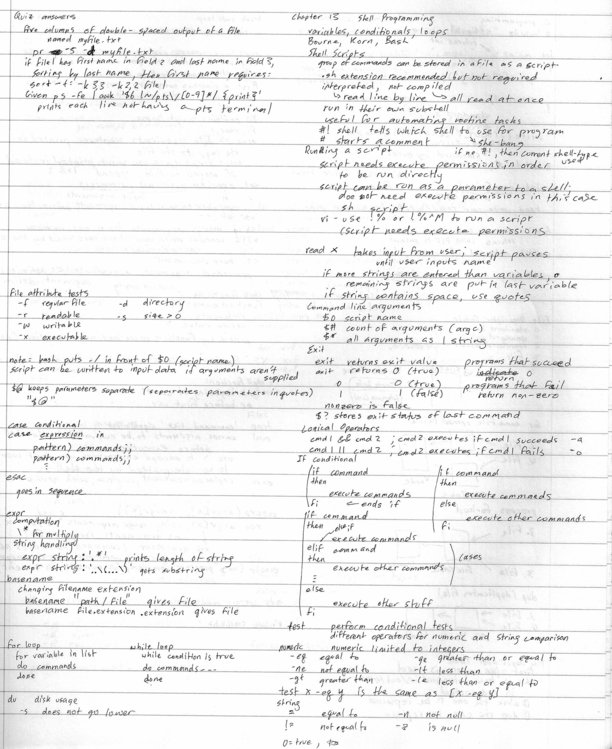 Quiz answers
five columns of double-spaced output of a file
named myfile.txt
pr -5 -d myfile.txt
if file1 has first name in field 2 and last name in field 3,
sorting by last name, then first name requires:
sort -t: -k3,3 -k2,2 file1
Given ps -fe | awk '$6 !~/pts\/[0-9]*/ {print}'
prints each line not having a pts terminal
file attribute tests
-f regular file -d directory
-r readable -s size > 0
-w writable
-x executable
note: bash puts ./ in front of $0 (script name)
script can be written to input data if arguments aren't
supplied
$@ keeps parameters separate (separates parameters in quotes)
"$@"
case conditional
case expression in
pattern) commands;;
pattern) commands;;
⋮
esac
goes in sequence
expr
computation
\* for multiply
string handling
expr string : '.*' prints length of string
expr string : '..\(...\)' gets substring
basename
changing filename extension
basename "path/file" gives file
basename file.extension .extension gives file
for loop while loop
for variable in list while condition is true
do commands do commands
done done
du disk usage
-s does not go lower
Chapter 13 Shell Programming
variables, conditionals, loops
Bourne, Korn, Bash
Shell Scripts
group of commands can be stored in a file as a script
.sh extension recommended but not required
interpreted, not compiled
↳ read line by line ↳ all read at once
run in their own subshell
useful for automating routine tasks
#! shell tells which shell to use for program
# starts a comment ↳ she-bang
Running a script if no #!, then current shell-type
used
script needs execute permissions in order
to be run directly
script can be run as a parameter to a shell;
does not need execute permissions in this case
sh script
vi - use !% or !%^M to run a script
(script needs execute permissions
read x takes input from user; script pauses
until user inputs name
if more strings are entered than variables,
remaining strings are put in last variable
if string contains space, use quotes
Command line arguments
$0 script name
$# count of arguments (argc)
$* all arguments as 1 string
Exit
exit returns exit value programs that succeed
exit returns 0 (true) indicate 0
return
0 0 (true) programs that fail
1 1 (false) return non-zero
nonzero is false
$? stores exit status of last command
Logical Operators
cmd1 && cmd2 ; cmd2 executes if cmd1 succeeds -a
cmd1 || cmd2 ; cmd2 executes if cmd1 fails -o
If conditional
if command if command
then then
execute commands execute commands
fi ← ends if else
execute other commands
fi
if command
then else if
execute commands
elif command
then cases
execute other commands
⋮
else
execute other stuff
fi
test perform conditional tests
different operators for numeric and string comparison
numeric numeric limited to integers
-eq equal to -ge greater than or equal to
-ne not equal to -lt less than
-gt greater than -le less than or equal to
test x -eq y is the same as [x -eq y]
string
= equal to -n not null
!= not equal to -z is null
0 = true,